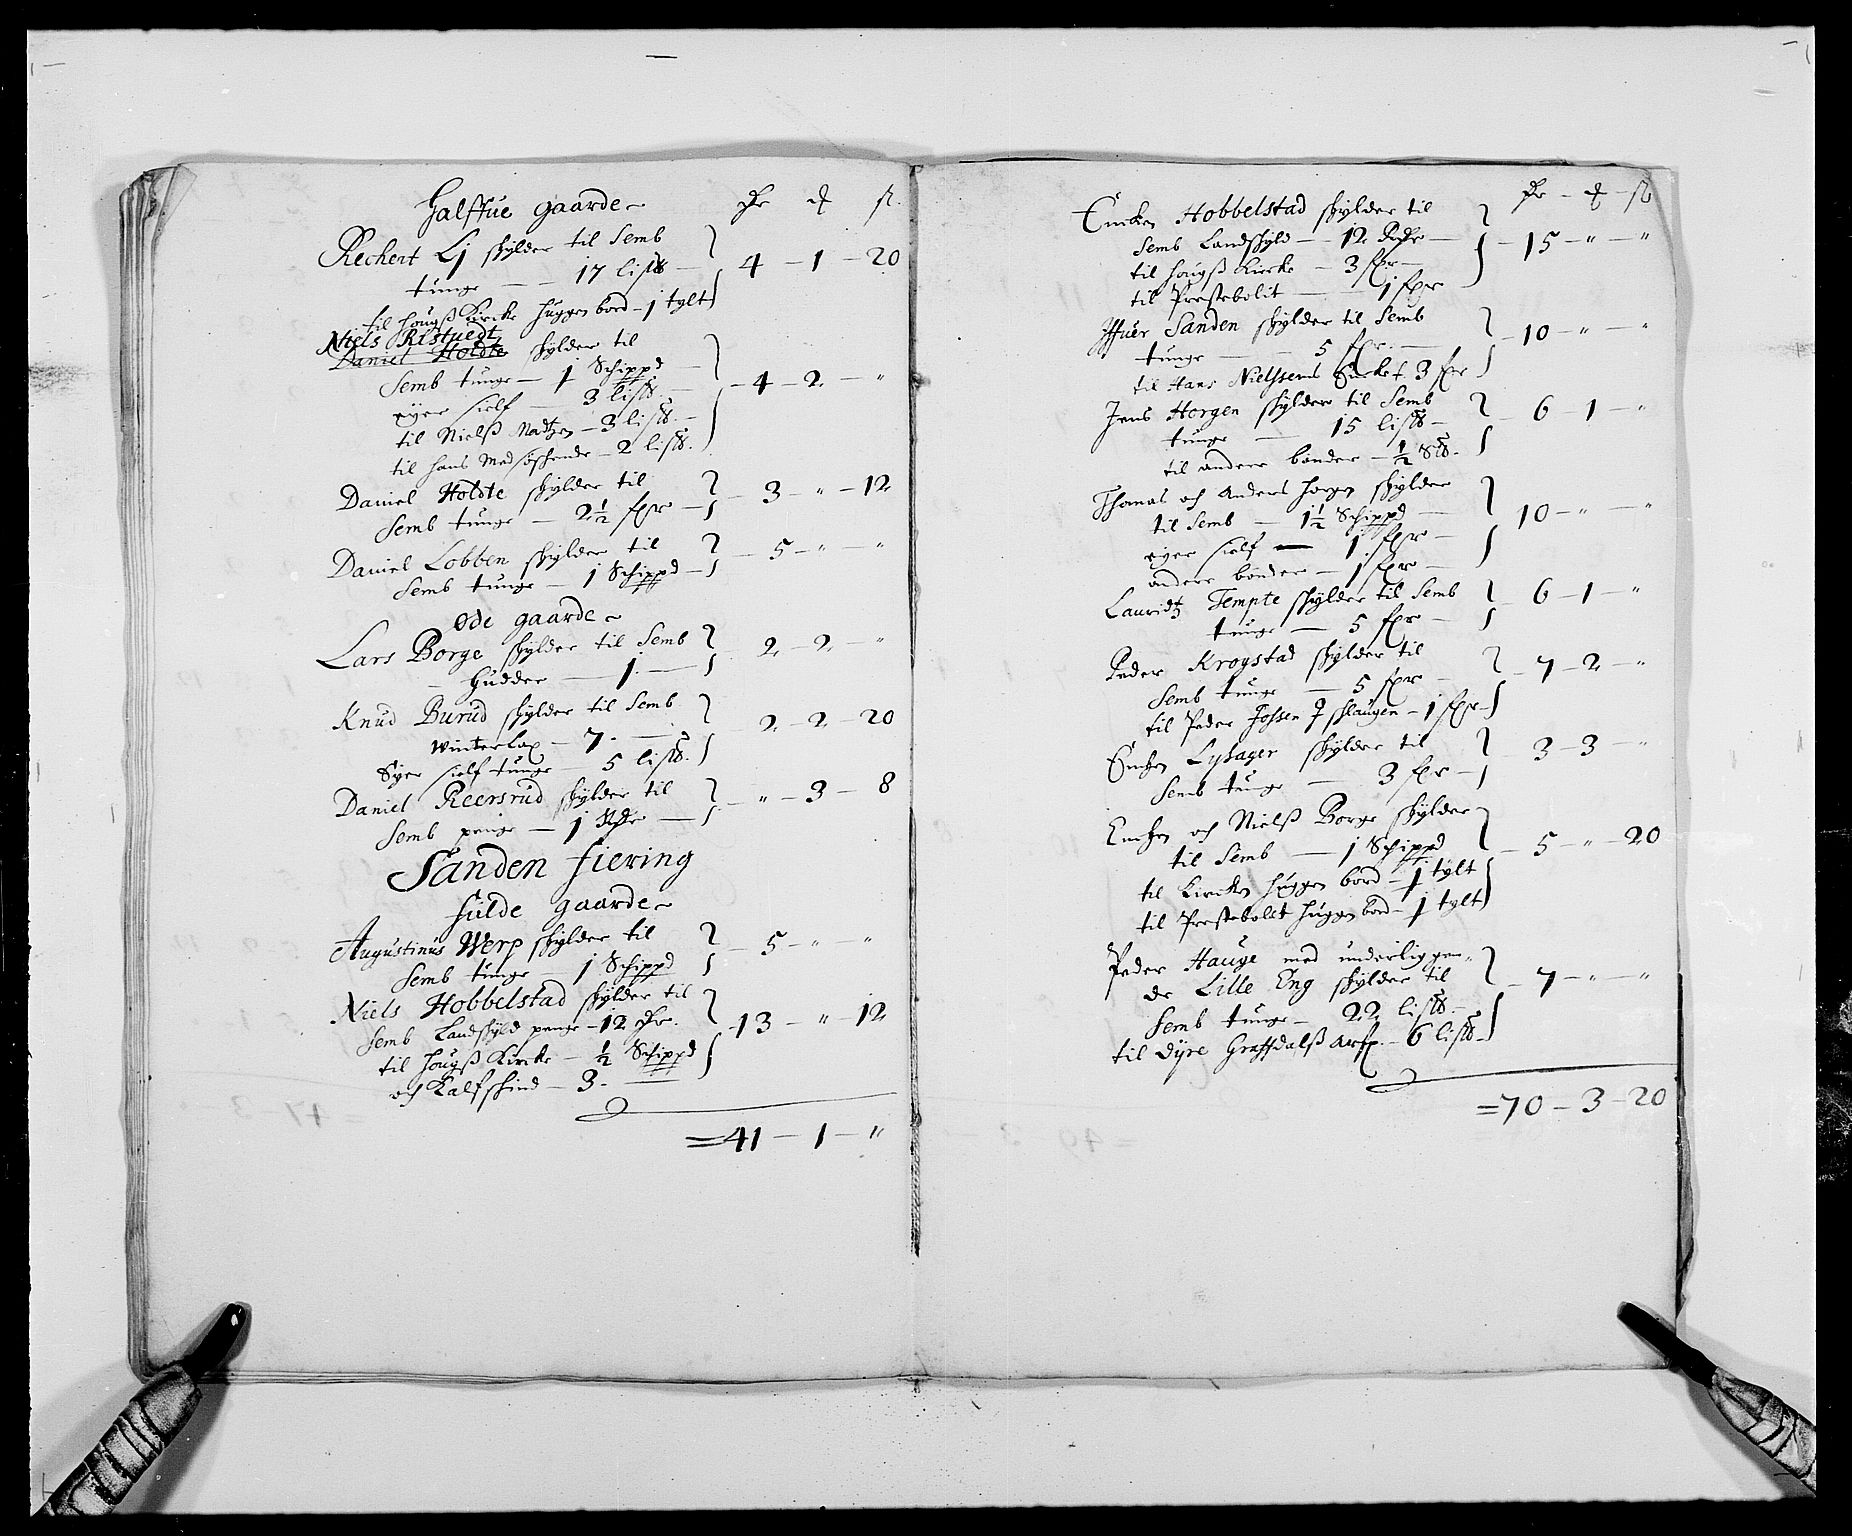 Halffue gaarde
Dr ß
Rechert Lj skylder til Semb
tunge — 17 lispd — 4 — 1 — 20
til Hougß Kircke Huggen bord — 1 tylt
Niels Ristuedt
Daniel Holdte skylder til
Semb tunge — 1 Schippd — 4 — 2 — "
eyer sielf — 3 lispd
til Nielß Madtzen — 3 lispd
til hans Medsøskende — 2 lispd
Daniel Holdte skylder til
Semb tunge — 2½ fpr — 3 — " — 12
Daniel Lobben skylder til
Semb tunge — 1 Schippd — 5 — " — "
øde gaarde
Lars Borge skylder til Semb
Hudder — 1 — 2 — 2 — "
Knud Burud skylder til Semb
Winterlax — 7 — 2 — 2 — 20
Eyer sielf tunge — 5 lispd
Daniel Reersrud skylder til
Semb penge — 1 Rdr — " — 3 — 8
Sanden fiering
fulde gaarde
Augustinus Werp skylder til
Semb tunge — 1 Schippd — 5 — " — "
Niels Hobbelstad skylder til
Semb Landskyld penge — 12 Dr. — 13 — " — 12
til Hougß Kircke — ½ Schippd
och Kalfskind — 3
= 41 — 1 — "
Dr ß
Hobbelstad skylder til
Semb Landskyld — 12 Rdr — 15 — " — "
til Hougß Kircke — 3 fpr
til Prestebolit — 1 fpr
Iffuer Sanden skylder til Semb
tunge — 5 fpr — 10 — " — "
til Hans Nielssens 3 fpr
Jens Horgen skylder til Semb
tunge — 15 lispd — 6 — 1 — "
til andere bønder — ½
Thomas och Anders Horgen skylder
til Semb — 1½ Schippd — 10 — " — "
eyer sielf — 1 fpr
andere bønder — 1 fpr
Lauridtz Tempte skylder til Semb
tunge — 5 fpr — 6 — 1 — "
Peder Krogstad skylder til
Semb tunge — 5 fpr — 7 — 2 — "
til Peder — 1 fpr
Lysager skylder til
Semb tunge — 3 fpr — 3 — 3 — "
och Nielß Borge skylder
til Semb — 1 Schippd — 5 — " — 20
til Kircken Huggen bord — 1 tylt
til Prestebolit Huggen bord — 1 tylt
Peder Hauge med underliggen-
de Lille Eng skylder til
Semb tunge — 22 lispd — 7 — " — "
til Dyre Graffdalß — 6 lispd
= 70 — 3 — 20